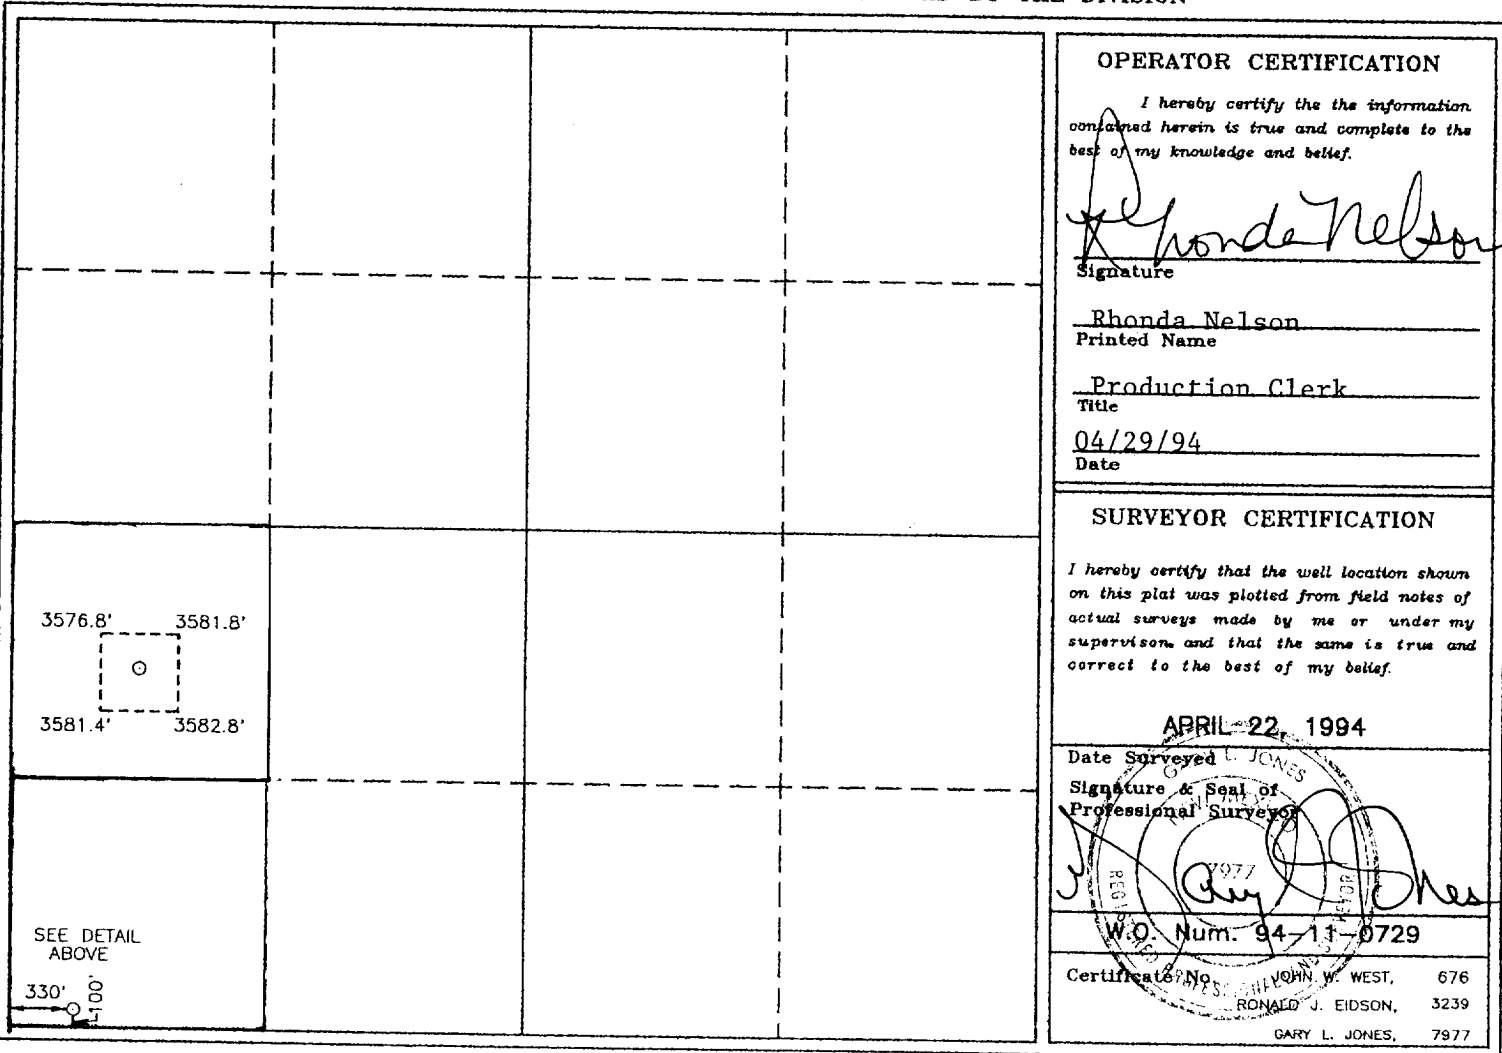 THE DIVISION
3576.8' 3581.8'
3581.4' 3582.8'
SEE DETAIL
ABOVE
330'
100'
OPERATOR CERTIFICATION
I hereby certify the the information
contained herein is true and complete to the
best of my knowledge and belief.
Rhonda Nelson
Signature
Rhonda Nelson
Printed Name
Production Clerk
Title
04/29/94
Date
SURVEYOR CERTIFICATION
I hereby certify that the well location shown
on this plat was plotted from field notes of
actual surveys made by me or under my
supervison, and that the same is true and
correct to the best of my belief.
APRIL 22, 1994
Date Surveyed
Signature & Seal of
Professional Surveyor
GARY L. JONES
NEW MEXICO
7977
REGISTERED PROFESSIONAL LAND SURVEYOR
Gary Jones
W.O. Num. 94-11-0729
Certificate No. JOHN W. WEST, 676
RONALD J. EIDSON, 3239
GARY L. JONES, 7977